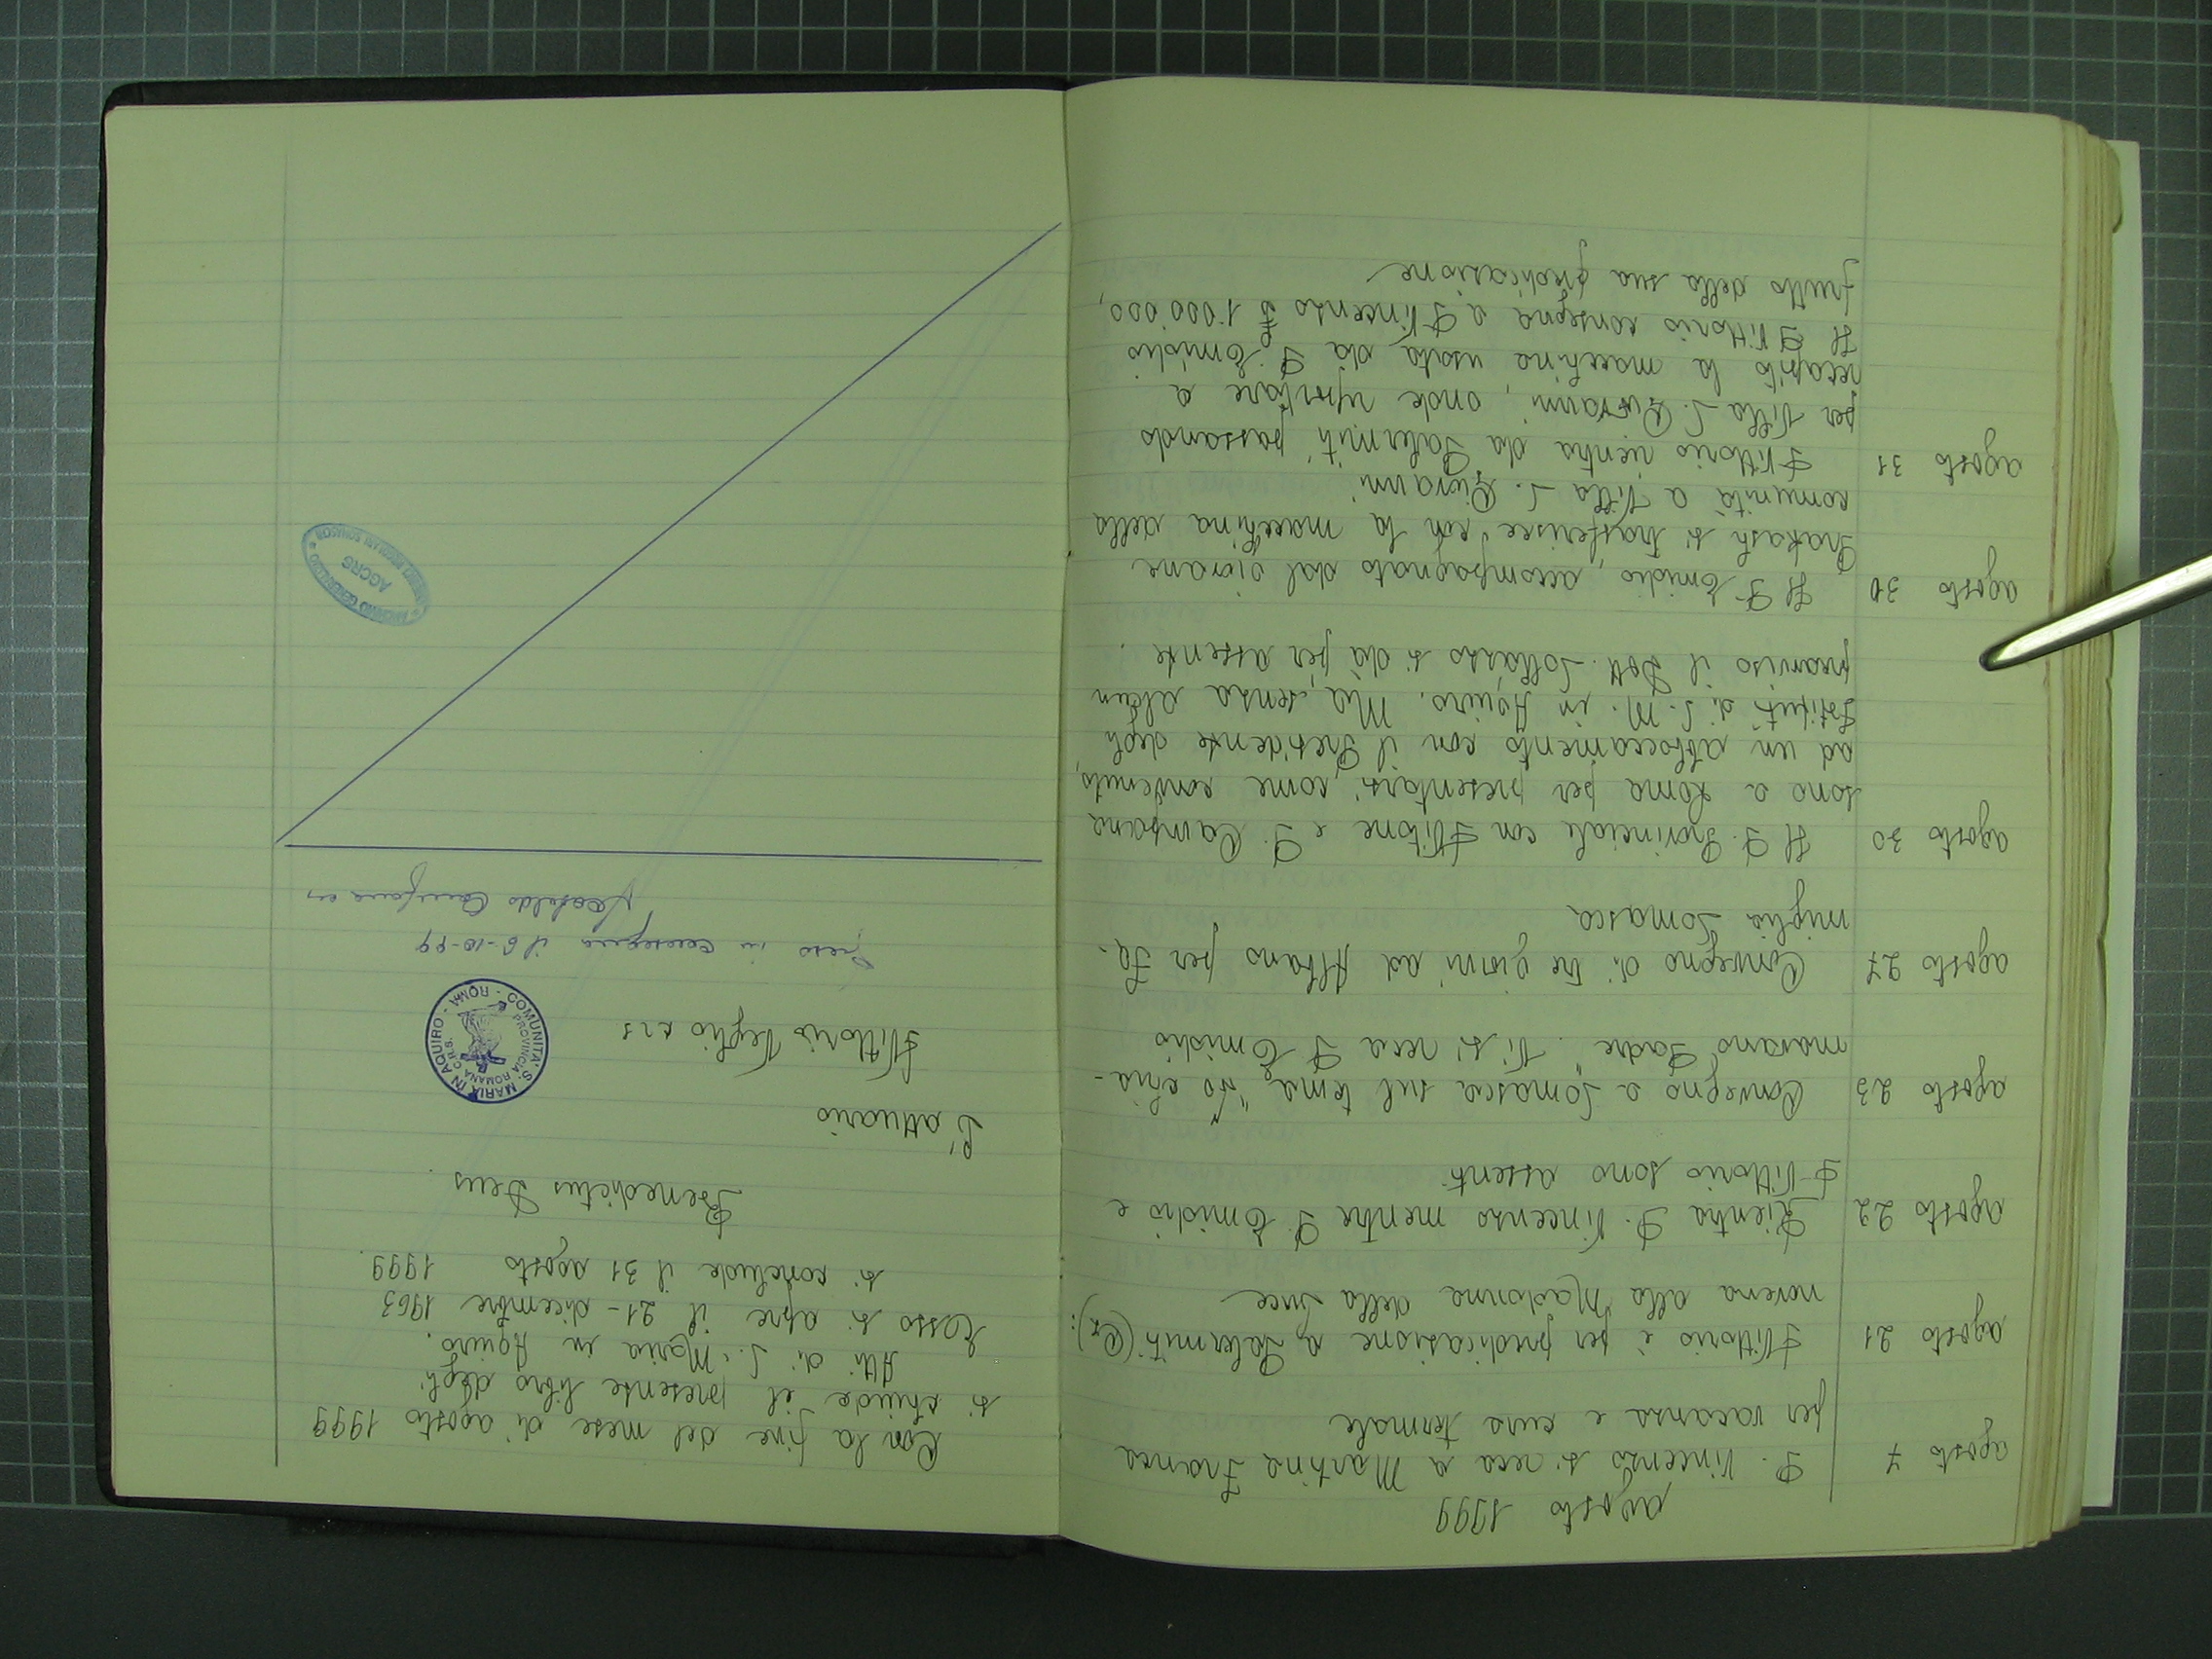 agosto 1999
agosto 7 P. Vincenzo si reca a Martina Franca
per vacanza e cura termale
agosto 21 P Vittorio è per predicazione a Palermiti (Cz):
novena alla Madonna della Luce
agosto 22 Rientra P. Vincenzo mentre P Emidio e
P Vittorio sono assenti.
agosto 23 Convegno a Somasca sul tema "Lo chia-
mavano Padre". Vi si reca P Emidio
agosto 27 Convegno di tre giorni ad Albano per Fa-
miglia Somasca
agosto 30 Il P. Provinciale con P Vitone e P. Campana
sono a Roma per presentarsi, come convenuto,
ad un abboccamento con il Presidente degli
Istituti di S. M. in Aquiro. Ma, senza alcun
preavviso il Dott. Sollazzo si dà per assente.
agosto 30 Il P Emidio, accompagnato dal giovane
Prakash si trasferisce con la macchina della
comunità a Villa S. Giovanni
agosto 31 P Vittorio rientra da Palermiti passando
per Villa S. Giovanni, onde riportare a
recapito la macchina usata da P. Emidio
Il P Vittorio consegna a P Vincenzo £ 1.000.000,
frutto della sua predicazione
Con la fine del mese di agosto 1999
si chiude il presente libro degli
Atti di S. Maria in Aquiro.
Esso si apre il 21 - dicembre 1963
si conclude il 31 agosto 1999.
Benedictus Deus.
L'attuario
P Vittorio Veglio crs
COMUNITA' S. MARIA IN AQUIRO - ROMA -
PROVINCIA ROMANA C.R.S.
Preso in consegna il 6-10-99
Campana crs
ARCHIVIO GENERALIZIO
AGCRS
CHIERICI REGOLARI SOMASCHI